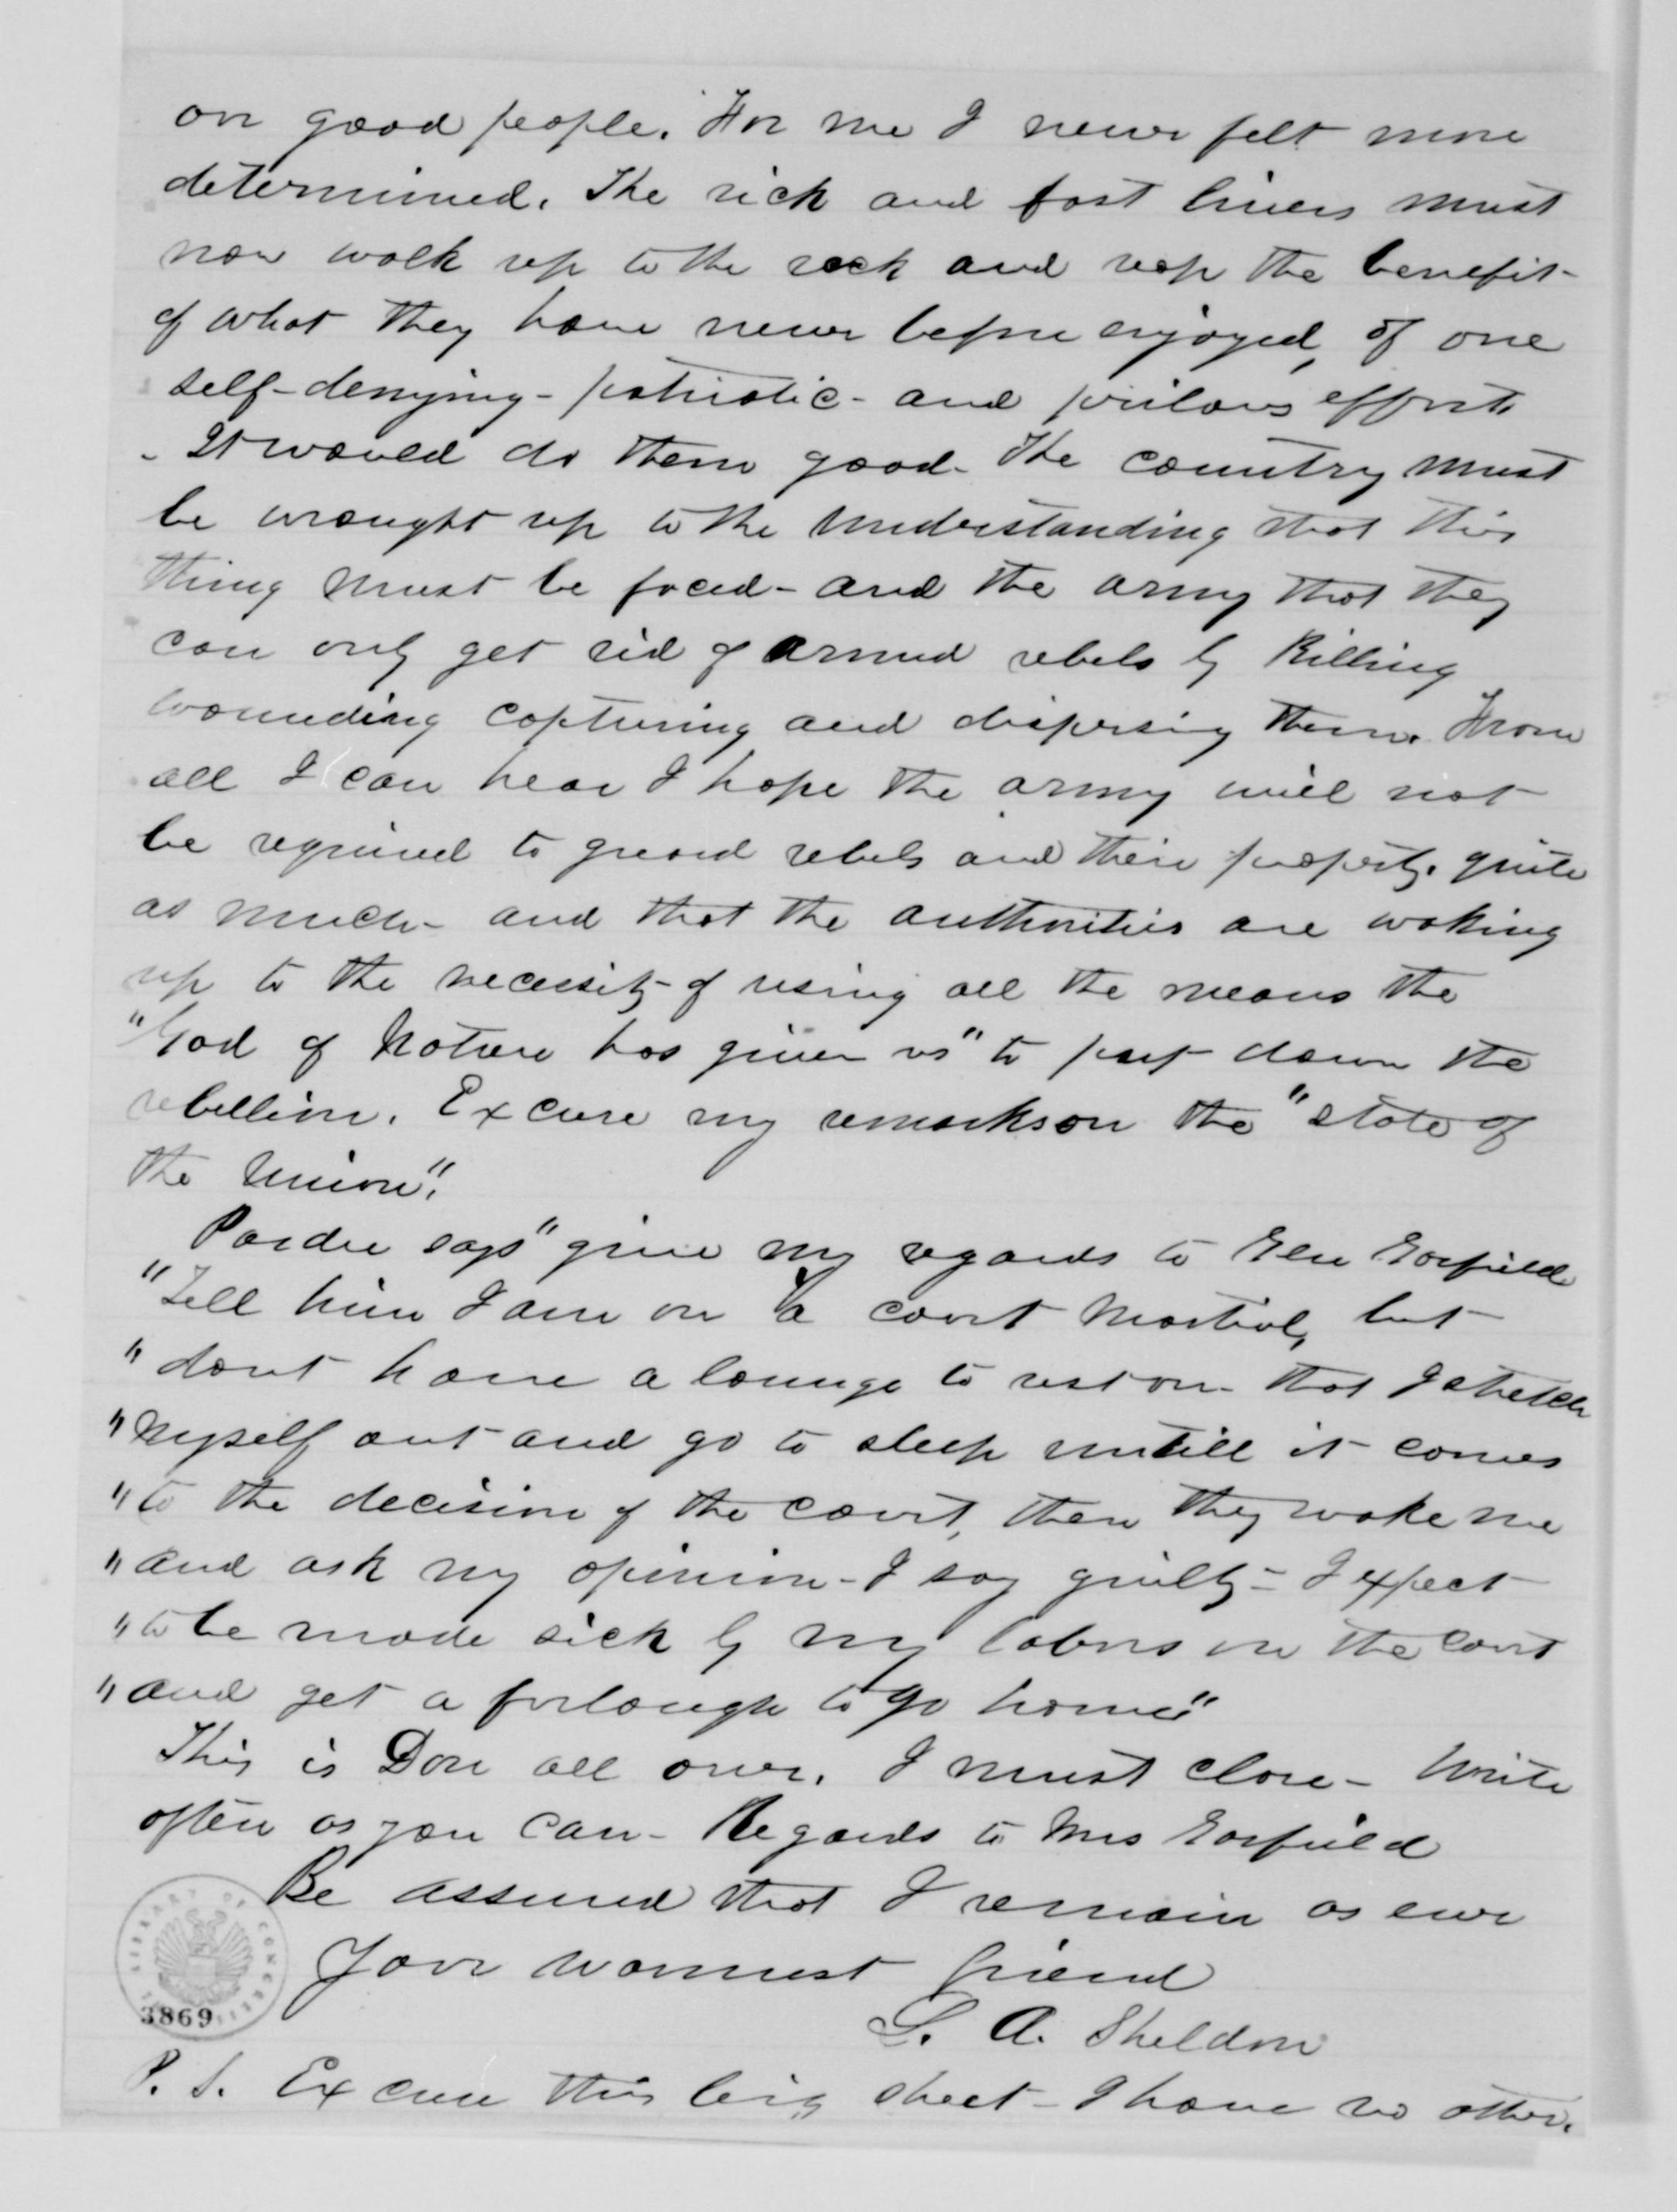 on good people. For me I never felt more
determined. The rich and fast livers must
now walk up to the rack and reap the benefit
of what they have never before enjoyed, of one
self-denying - patriotic - and perilous effort
- It would do them good - The country must
be wrought up to the understanding that this
thing must be faced - and the army that they
can only get rid of armed rebels by Killing
wounding capturing and dispersing them. From
all I can hear I hope the army will not
be required to guard rebels and their property quite
as much - and that the authorities are waking
up to the necessity of using all the means the
"God of Nature has given us" to put down the
rebellion. Excuse my remarks on the "state of
the Union".
Pardee says "give my regards to Gen Garfield
"Tell him I am on a court Martial, but
"dont have a lounge to rest on - that I stretch
"Myself out and go to sleep untill it comes
"to the decision of the court, then they wake me
"and ask my opinion - I say guilty - I expect
"to be made sick by my labors on the court
"and get a furlough to go home"
This is Don all over. I must close - Write
often as you can - Regards to Mrs Garfield
Be assured that I remain as ever
Your warmest friend
L. A. Sheldon
LIBRARY OF CONGRESS
3869
P. S. Excuse this big sheet - I have no other.